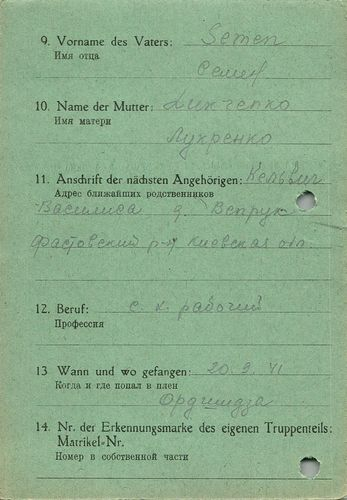 9. Vorname des Vaters: Semen
Имя отца
Семен
10. Name der Mutter:
Имя матери
Лукренко
11. Anschrift der nächsten Angehörigen:
Адрес ближайших родственников
Василиса д. Веприк
Фастовский р-н Киевская обл.
12. Beruf: с. х. рабочий
Профессия
13 Wann und wo gefangen: 20. 9. 41
Когда и где попал в плен
14. Nr. der Erkennungsmarke des eigenen Truppenteils:
Matrikel-Nr.
Номер в собственной части